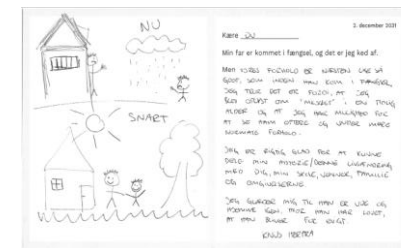 NU
SNART
2. december 2021
Kære DU
Min far er kommet i fængsel, og det er jeg ked af.
Men VORES FORHOLD ER NÆSTEN LIGE SÅ
GODT, SOM INDEN HAN KOM I FÆNGSEL.
JEG TROR DET ER FORDI, AT JEG
BLEV OPLYST OM I EN TIDLIG
ALDER OG AT JEG HAR
SE HAM OFTERE OG UNDER MERE
NORMALE FORHOLD.
JEG ER RIGTIG GLAD FOR AT KUNNE
DELE MIN HISTORIE/DENNE
MED DIG, MIN VENNER, FAMILIE
OG OMGIVELSERNE.
JEG GLÆDER MIG TIL HAN ER UDE OG
HJEMME IGEN, FOR HAN HAR LOVET,
AT HAN BLIVER FOR EVIGT.
KNUS